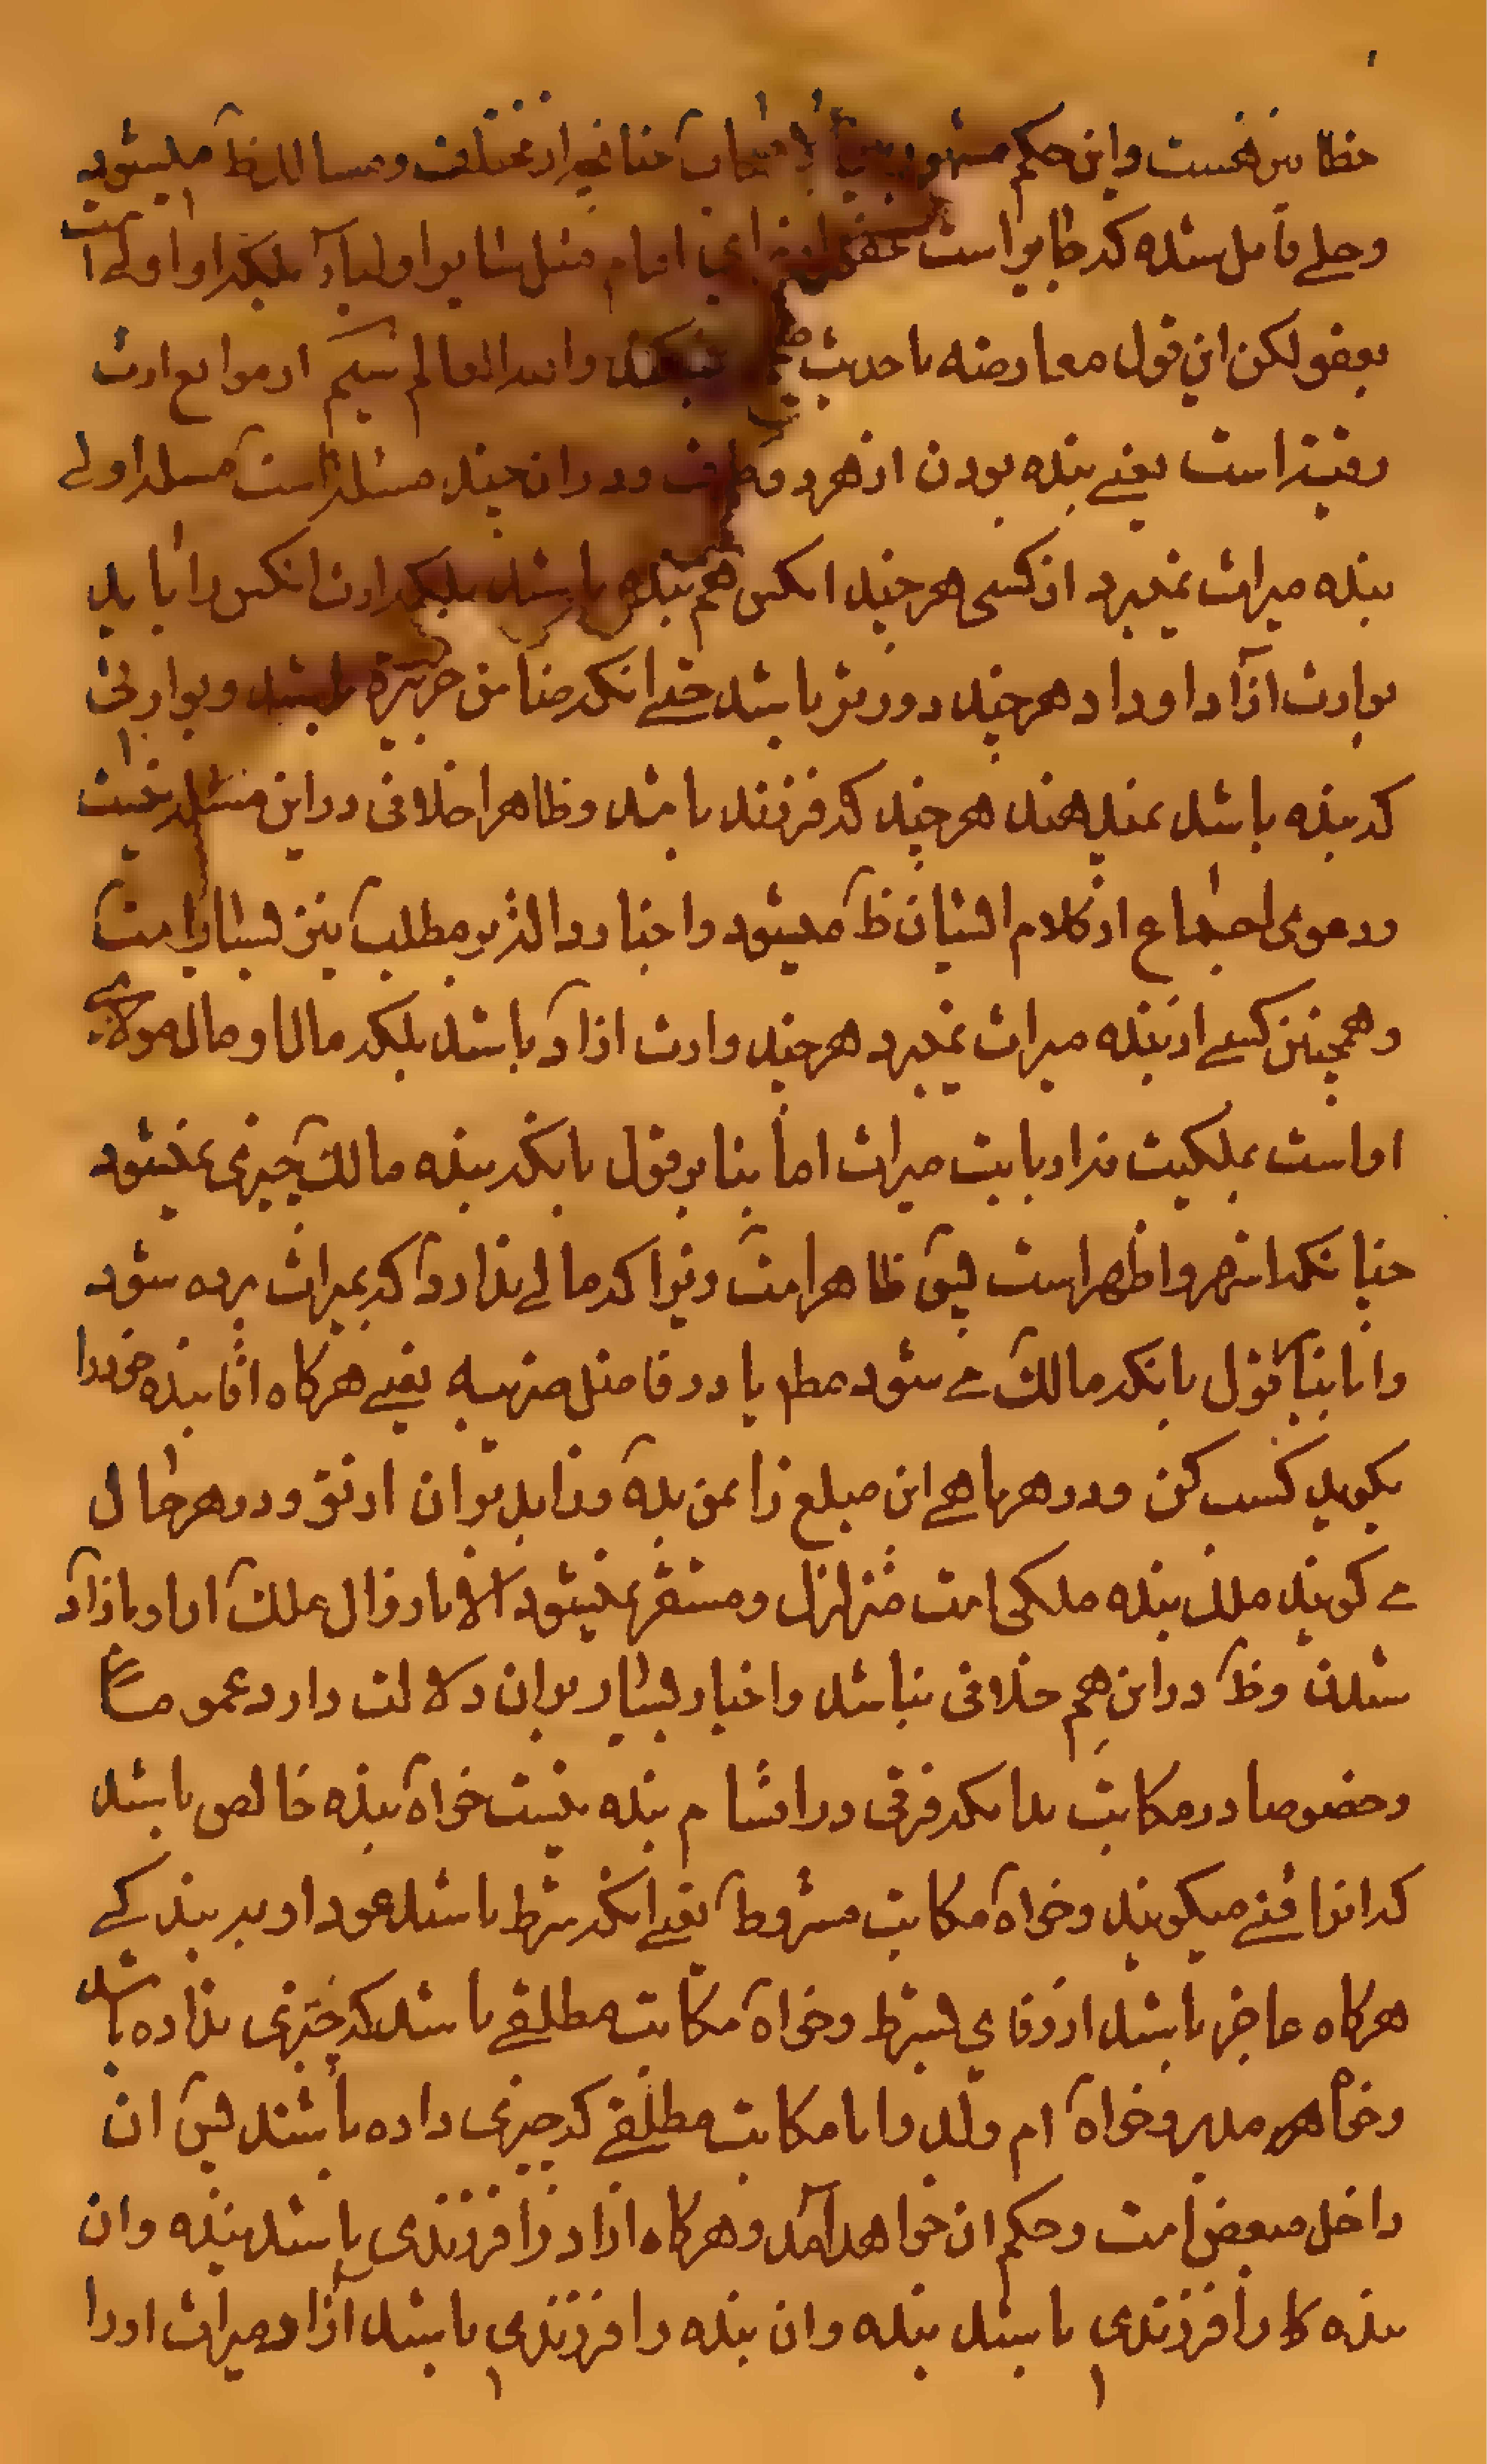 خطا نیز نیست و این حکم مشهور میانه اصحاب چنانچه از مختلف و مسالک ظ میشود
و حلی قائل شده که جایز است عفو از برای امام مثل سایر اولیاء بلکه او اولی است
بعفو لکن این قول معارضه با حدیث صحیح نمیکند والله العالم سیم از موانع ارث
رقیت است یعنی بنده بودن از هر دو طرف و در ان چند مسئله است مسئله اولی
بنده میراث نمیبرد از کسی هر چند انکس هم بنده باشد بلکه ارث انکس را باید
بوارث ازاد او داد هر چند دورتر باشد حتی انکه ضامن جریره باشد و بوارثی
که بنده باشد نمیدهند هر چند که فرزند باشد و ظاهرا خلافی در این مسئله نیست
و دعوی اجماع از کلام ایشان ظ میشود و اخبار داله بر مطلب نیز بسیار است
و همچنین کسی از بنده میراث نمیبرد هر چند وارث ازاد باشد بلکه مال او مال مولای
او است بملکیت نه از بابت میراث اما بنا بر قول بانکه بنده مالک چیزی نمیشود
چنانکه اشهر و اظهر است پس ظاهر است زیرا که مالی ندارد که بمیراث برده شود
و اما بنا بقول بانکه مالک می شود مطلقا یا در فاضل ضریبه یعنی هرگاه اقا بنده خود را
بگوید کسب کن و در هر ماهی این مبلغ را بمن بده و زاید بر ان از تو و در هر حال
می گویند ملک بنده ملکی است متزلزل و مستقر نمیشود الا با زوال ملک از او با ازاد
شدن و ظ در این هم خلافی نباشد و اخبار بسیار بر ان دلالت دارد عموما
و خصوصا در مکاتب بدانکه فرقی در اقسام بنده نیست خواه بنده خالص باشد
که انرا قن میگویند و خواه مکاتب مشروط یعنی انکه شرط باشد عود او به بندگی
هرگاه عاجز باشد از وفای بشرط و خواه مکاتب مطلقی باشد که چیزی نداده باشد
و خواه مدبر و خواه ام ولد و اما مکاتب مطلقی که چیزی داده باشند پس ان
داخل مبعض است و حکم ان خواهد آمد و هرگاه ازاد را فرزندی باشد بنده و ان
بنده را فرزندی باشد بنده و ان بنده را فرزندی باشد آزاد میراث او را